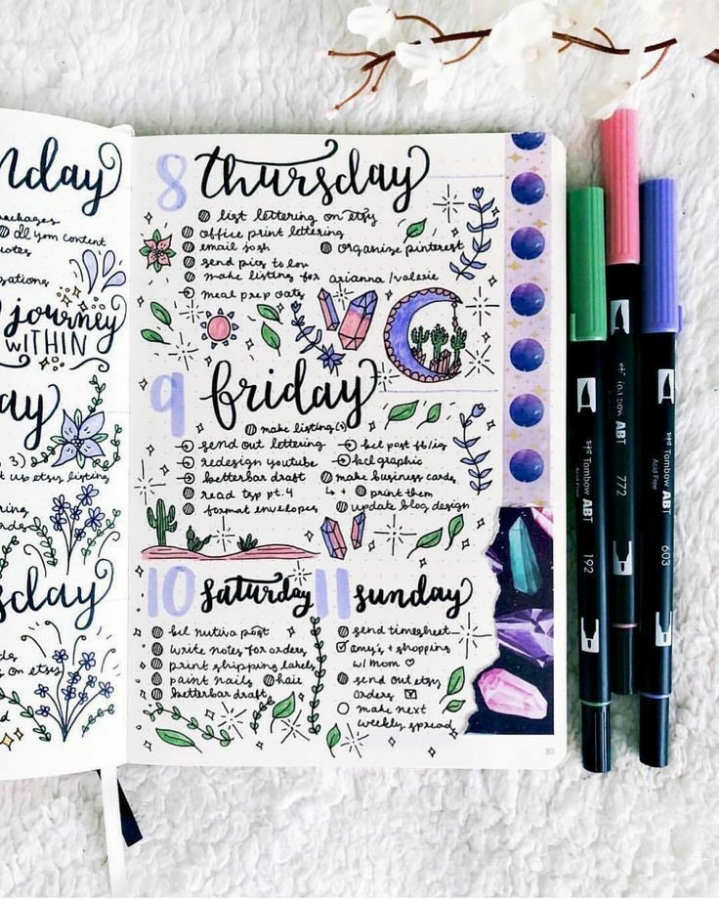 nday
packages
yom content
journey
WITHIN
ay
etsy listing
sday
on etsy
8 thursday
list lettering on etsy
office print lettering
email josh
organize pinterest
send pics to lou
make listing for arianna / valerie
meal prep oats
9 friday
make listing(s)
send out lettering
bcl post fb/ig
redesign youtube
bcl graphic
betterbar draft
make business cards
read tsp pt. 4
↳ + print them
format envelopes
update blog design
10 saturday
bcl nutiva post
write notes for orders
print shipping labels
paint nails
hair
betterbar draft
11 sunday
send timesheet
amy's + shopping
w/ mom ♡
send out etsy
orders
make next
weekly spread
Tombow ABT
Acid Free
192
Tombow ABT
772
Tombow ABT
Acid Free
603